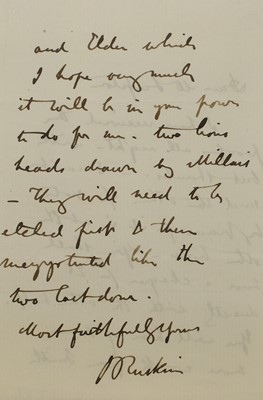 and Elder which
I hope very much
it will be in your power
to do for me. two lions
heads drawn by Millais
– They will need to be
etched first & then
mezzotinted like the
two last done.
Most faithfully yours
J Ruskin